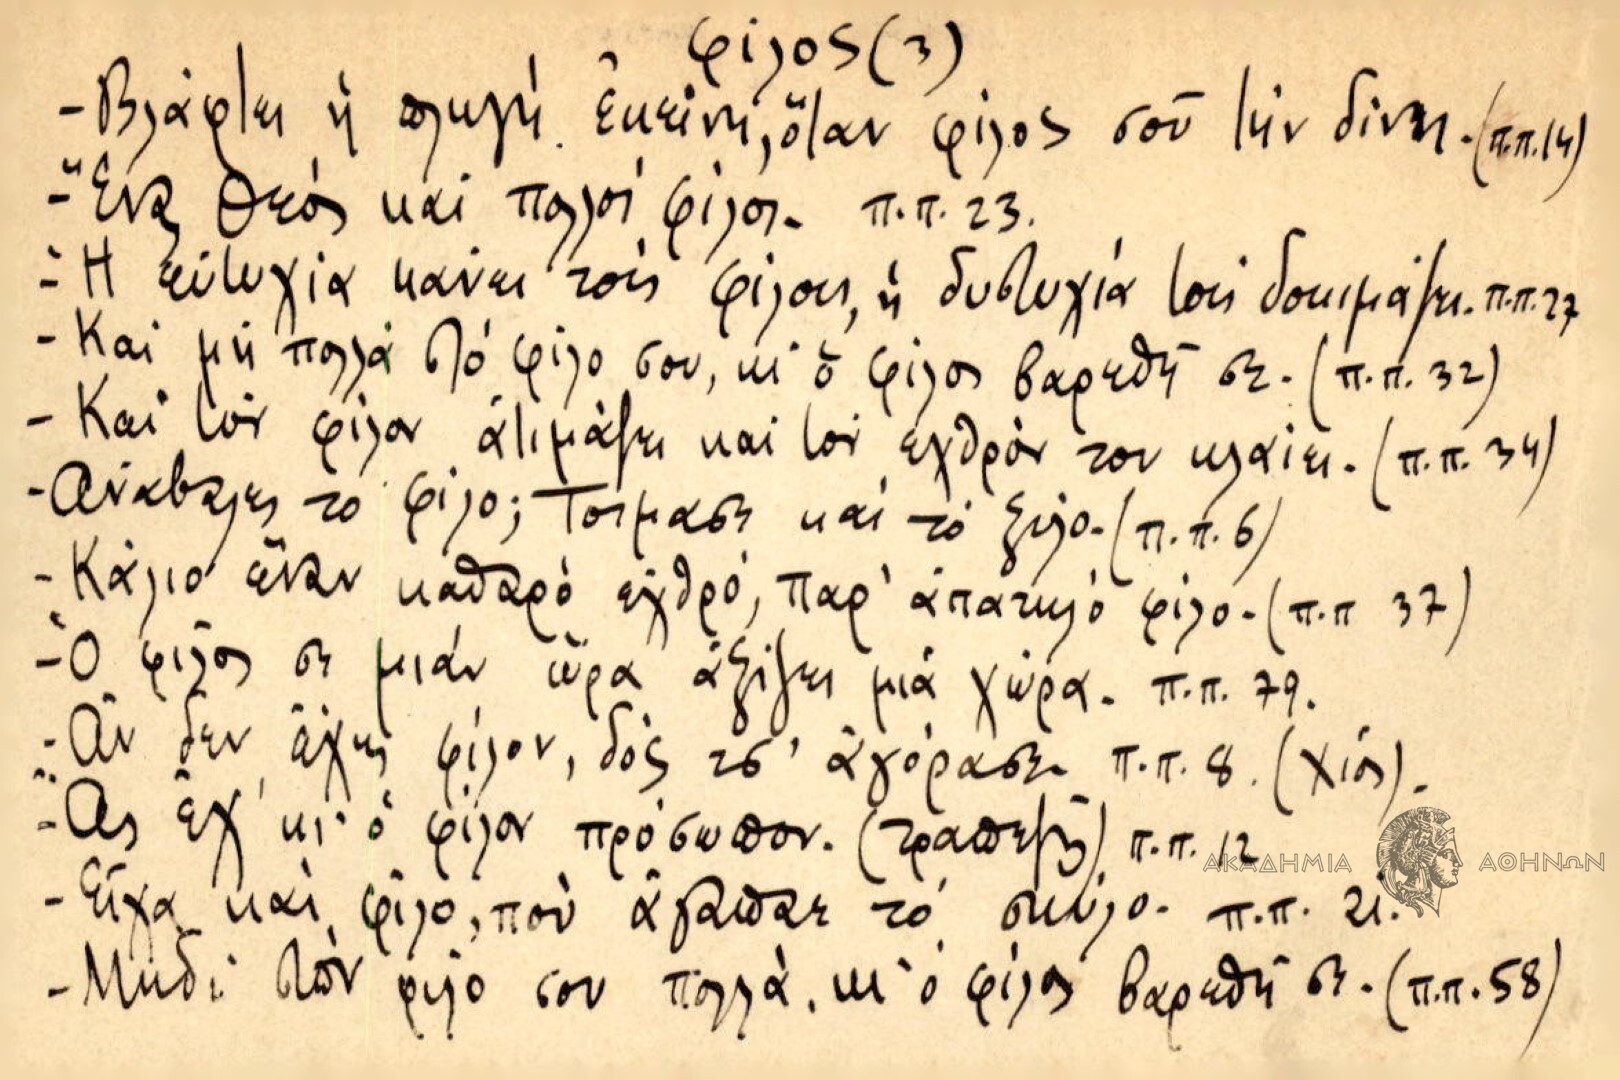 φίλος (3)
- Βλάφτει ἡ πληγή ἐκείνη, ὅταν φίλος σοῦ τήν δίνει. (π.π.14)
- Ἕνας θεός καί πολλοί φίλοι. π.π. 23.
- Ἡ εὐτυχία κάνει τούς φίλους, ἡ δυστυχία τούς δοκιμάζει. π.π. 27
- Καί μή πολλά στό φίλο σου, κι' ὁ φίλος βαρεθῆ σε. (π.π. 32)
- Καί τόν φίλον ἀτιμάζει καί τόν ἐχθρόν του κλαίει. (π.π. 34)
- Ἀνάβαλες το φίλο; Τοιμασε καί τό ξύλο. (π.π. 6)
- Κάλιο ἕναν καθαρό ἐχθρό, παρ' ἀπατηλό φίλο. (π.π 37)
- Ὁ φίλος σε μιάν ὥρα ἀξίζει μιά χώρα. π.π. 79.
- Ἄν δεν ἔχης φίλον, δός τσ' ἀγόρασε. π.π. 8. (Χίος).
- Ἄς ἔχ' κι' ὁ φίλον πρόσωπον. (τραπεζῆς) π.π. 12
- Εἶχα καί φίλο, πού ἀγαπαε τό σκύλο. π.π. 21.
- Μηδέ στόν φίλο σου πολλά, κι' ὁ φίλος βαρεθῆ σε. (π.π. 58)
ΑΚΑΔΗΜΙΑ ΑΘΗΝΩΝ